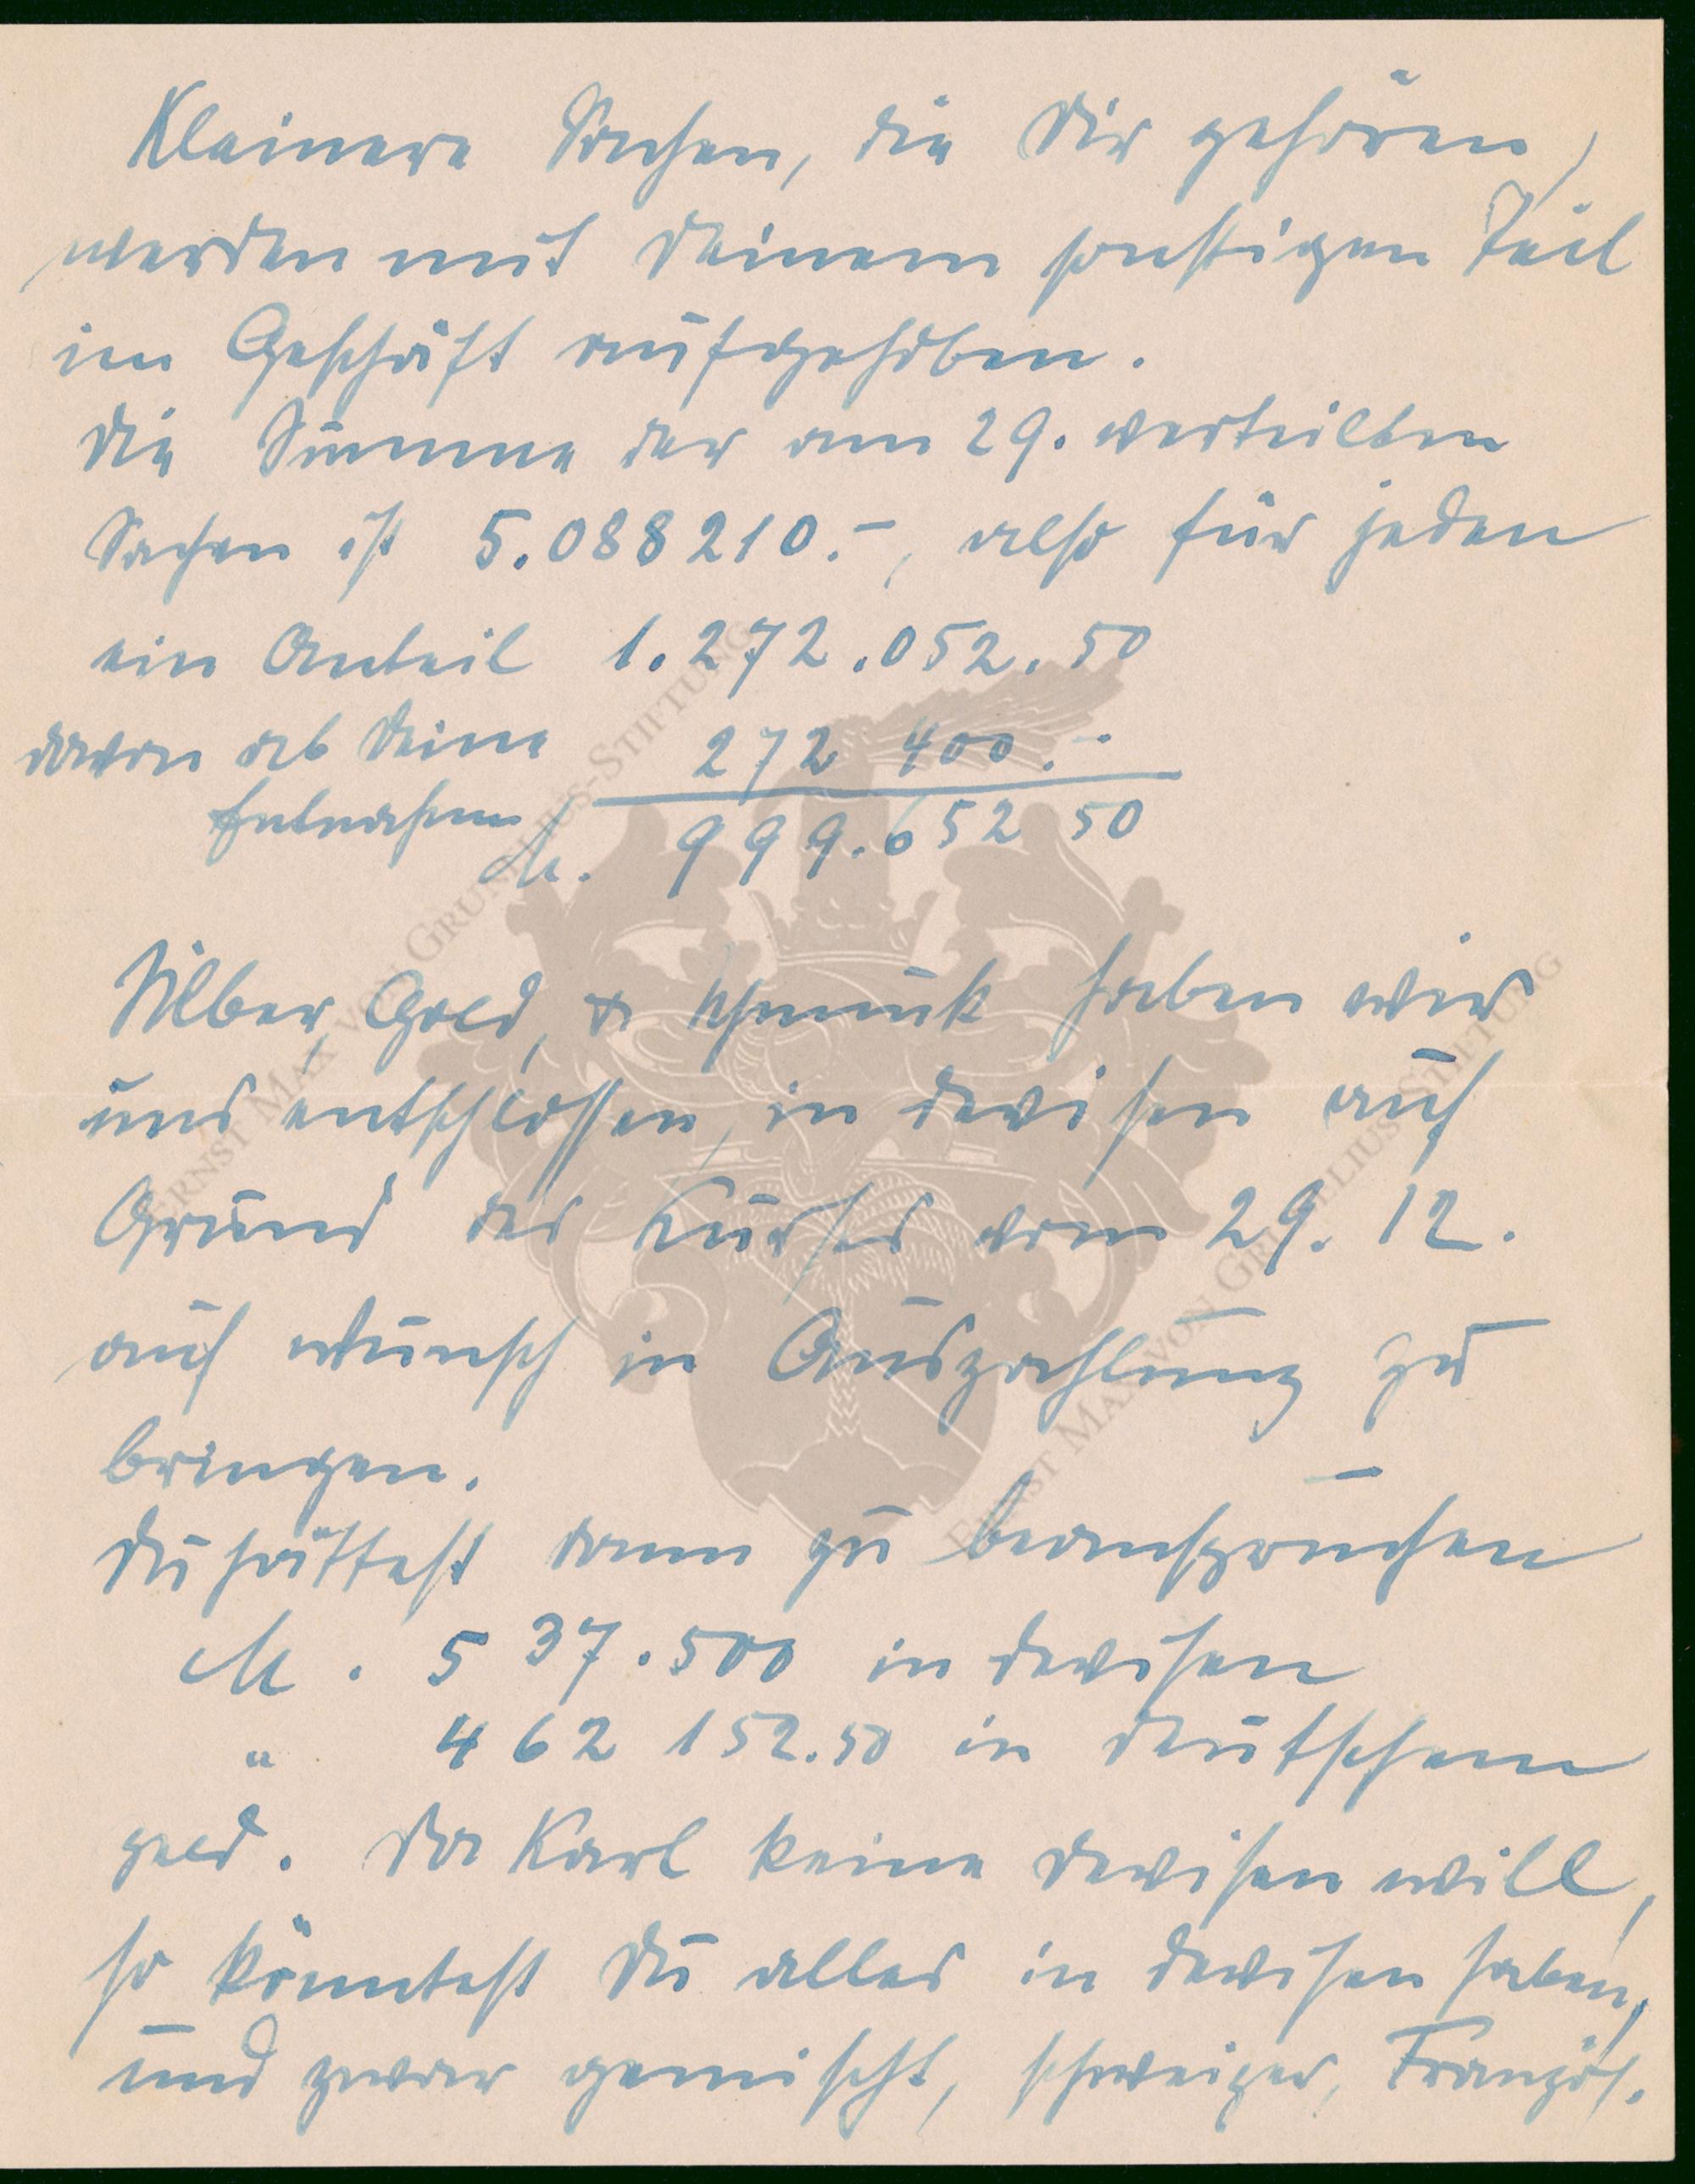 Kleinere Sachen, die Dir gehören,
werden mit Deinem sonstigen Teil
im Geschäft aufgehoben.
Die Summe der am 29. verteilten
Sachen ist 5.088210.-, also für jeden
ein Anteil 1.272.052.50
davon ab Deine 272 400.-
Entnahme M. 999.652 50
Silber, Gold, & Schmuck haben wir
uns entschlossen, in Devisen auf
Grund des Kurses vom 29. 12.
auf Wunsch in Auszahlung zu
bringen.
Du hättest dann zu beanspruchen
M. 537.500 in Devisen
" 462 152.50 in Deutschem
Geld. Da Karl keine Devisen will,
so könntest Du alles in Devisen haben,
und zwar gemischt, schweizer, Französ.
ERNST MAX VON GRUNELIUS-STIFTUNG
ERNST MAX VON GRUNELIUS-STIFTUNG